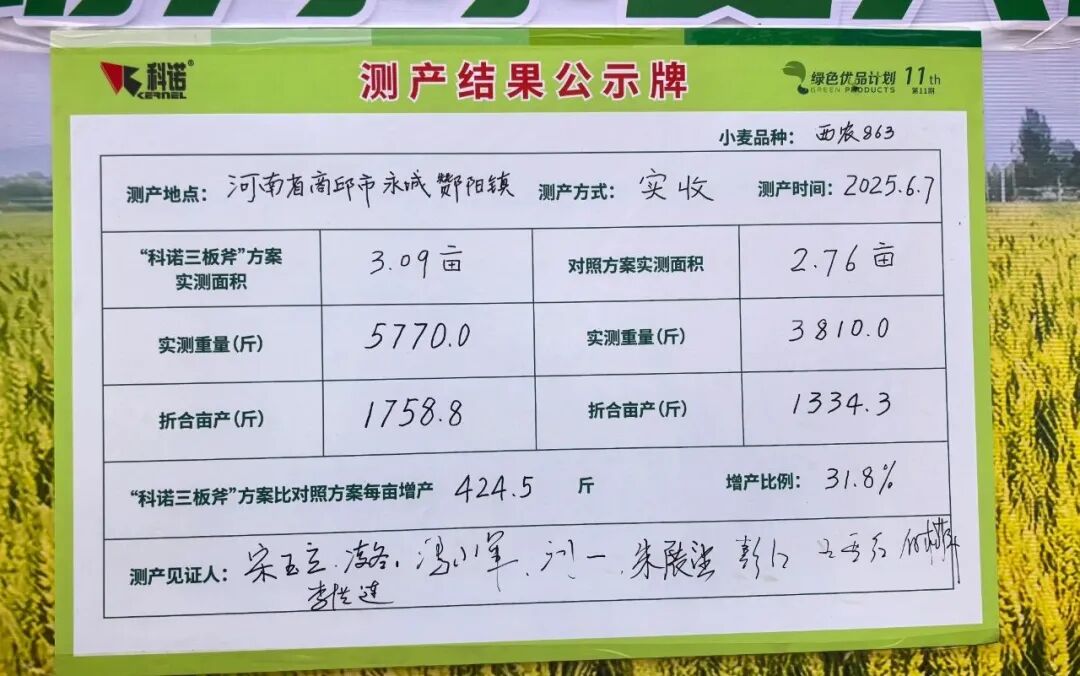 科诺®
KERNEL
测产结果公示牌
绿色优品计划 11th
GREEN PRODUCTS 第11期
小麦品种： 西农863
测产地点： 河南省商邱市永城酂阳镇 测产方式： 实收 测产时间： 2025.6.7
“科诺三板斧”方案
实测面积
3.09亩
对照方案实测面积
2.76亩
实测重量(斤)
5770.0
实测重量(斤)
3810.0
折合亩产(斤)
1758.8
折合亩产(斤)
1334.3
“科诺三板斧”方案比对照方案每亩增产 424.5 斤 增产比例： 31.8%
测产见证人： 宋玉立